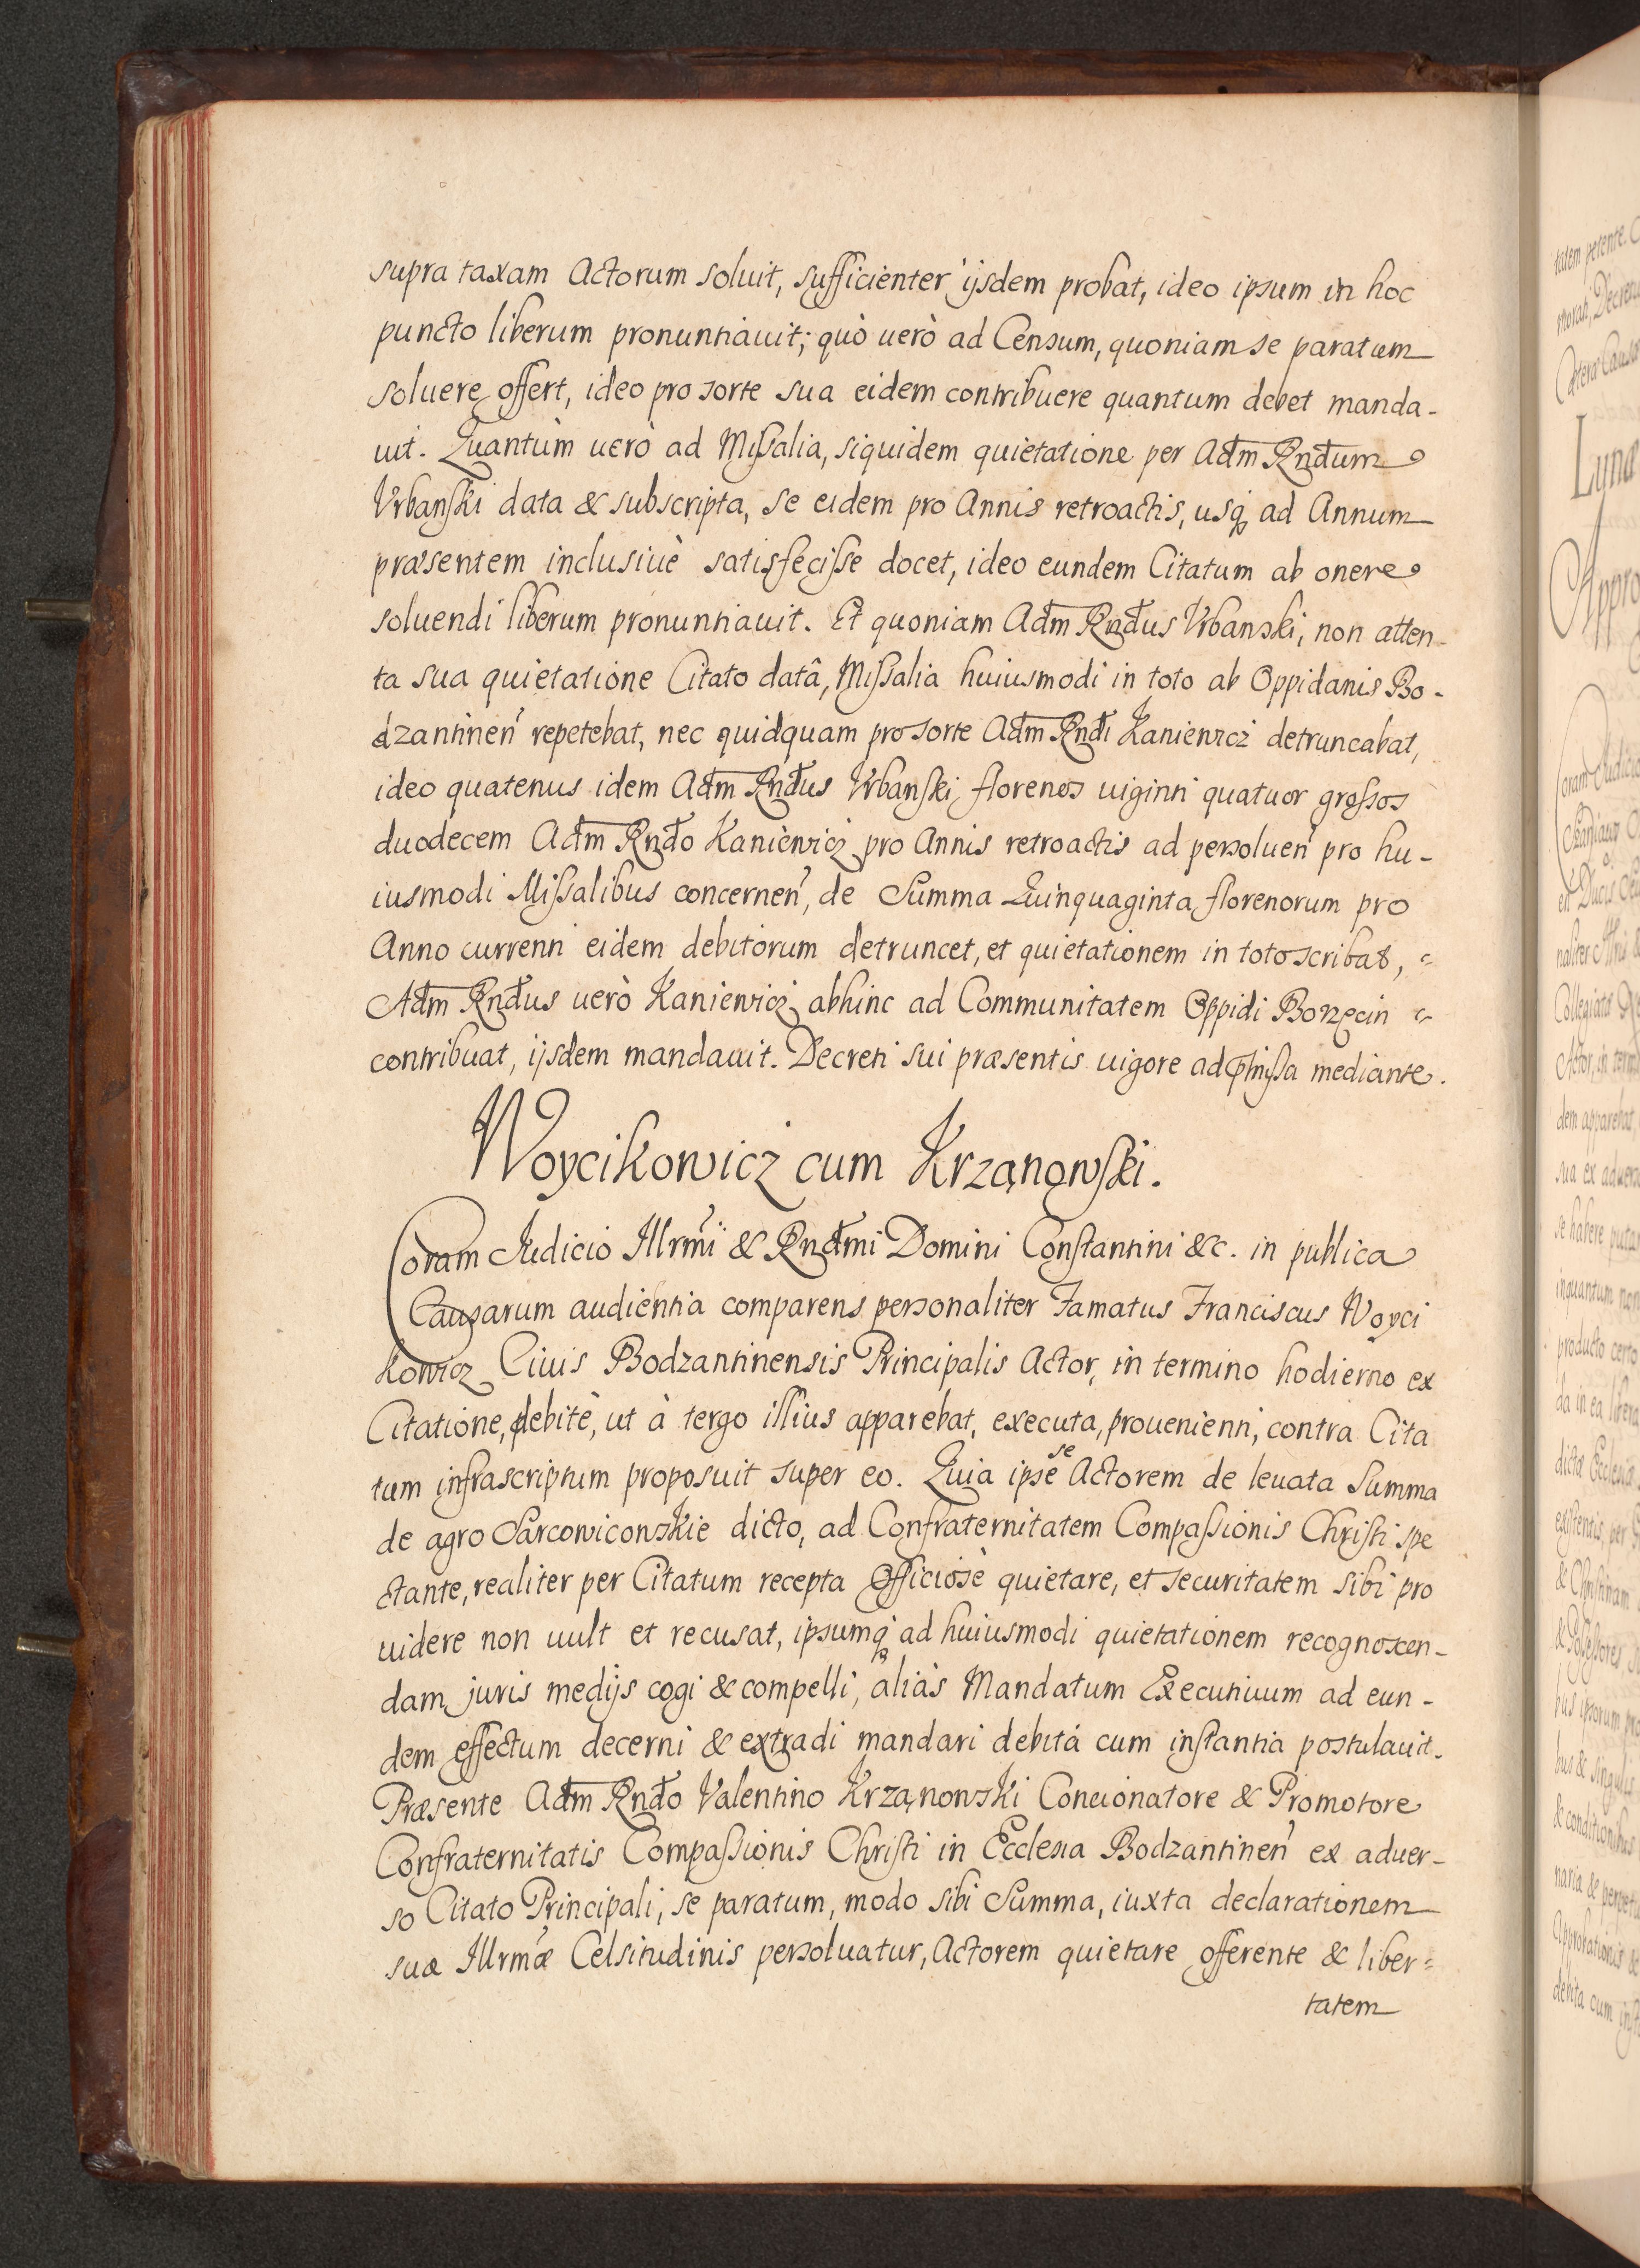 supra taxam Actorum soluit, sufficienter ijsdem probat, ideo ipsum in hoc
puncto liberum pronuntiauit; quò uerò ad Censum, quoniam se paratum
soluere offert, ideo pro sorte sua eidem contribuere quantum debet manda-
uit. Quantùm uerò ad Missalia, siquidem quietatione per Adm Rndum
Vrbanski data & subscripta, se eidem pro Annis retroactis, usq ad Annum
præsentem inclusiuè satisfecisse docet, ideo eundem Citatum ab onere
soluendi liberum pronuntiauit. Et quoniam Adm Rndus Vrbanski, non atten-
ta sua quietatione Citato datâ, Missalia huiusmodi in toto ab Oppidanis Bo-
dzantinen repetebat, nec quidquam pro sorte Adm Rndi Kaniewicz detruncabat,
ideo quatenus idem Adm Rndus Vrbanski florenos uiginti quatuor grossos
duodecem Adm Rndo Kaniewicz pro Annis retroactis ad persoluen pro hu-
iusmodi Missalibus concernen, de Summa Quinquaginta florenorum pro
Anno currenti eidem debitorum detruncet, et quietationem in toto scribat,
Adm Rndus uerò Kaniewicz abhinc ad Communitatem Oppidi Borzęcin
contribuat, ijsdem mandauit. Decreti sui præsentis uigore ad mediante.
Woycikowicz cum Krzanowski.
Coram Judicio Illrmi & Rndmi Domini Constantini &c. in publica
Causarum audientia comparens personaliter Famatus Franciscus Woyci
kowicz Ciuis Bodzantinensis Principalis Actor, in termino hodierno ex
Citatione, debitè, ut à tergo illius apparebat, executa, prouenienti, contra Cita
tum infrascriptum proposuit super eo. Quia ipse se Actorem de leuata Summa
de agro Sarcowiconskie dicto, ad Confraternitatem Compassionis Christi spe
ctante, realiter per Citatum recepta Officiosè quietare, et securitatem sibi pro
uidere non uult et recusat, ipsumq ad huiusmodi quietationem recognoscen-
dam juris medijs cogi & compelli, aliàs Mandatum Executiuum ad eun-
dem effectum decerni & extradi mandari debitá cum instantia postulauit.
Præsente Adm Rndo Valentino Krzanowski Concionatore & Promotore
Confraternitatis Compassionis Christi in Ecclesia Bodzantinen ex aduer-
so Citato Principali, se paratum, modo sibi Summa, iuxta declarationem
suæ Illrmæ Celsitudinis persoluatur, Actorem quietare offerente & liber=
tatem